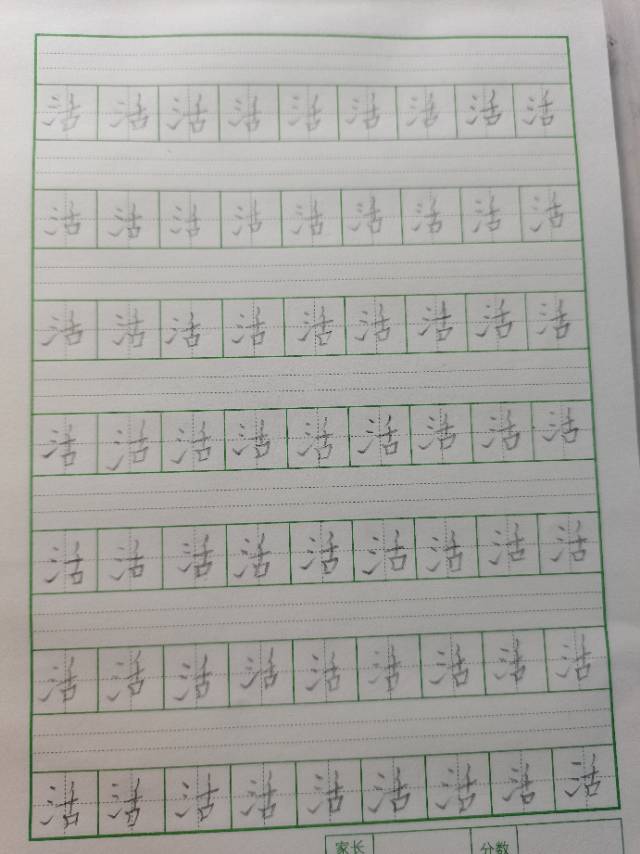 活活活活活活活活活
活活活活活活活活活
活活活活活活活活活
活活活活活活活活活
活活活活活活活活活
活活活活活活活活活
活活活活活活活活活
家长 分数